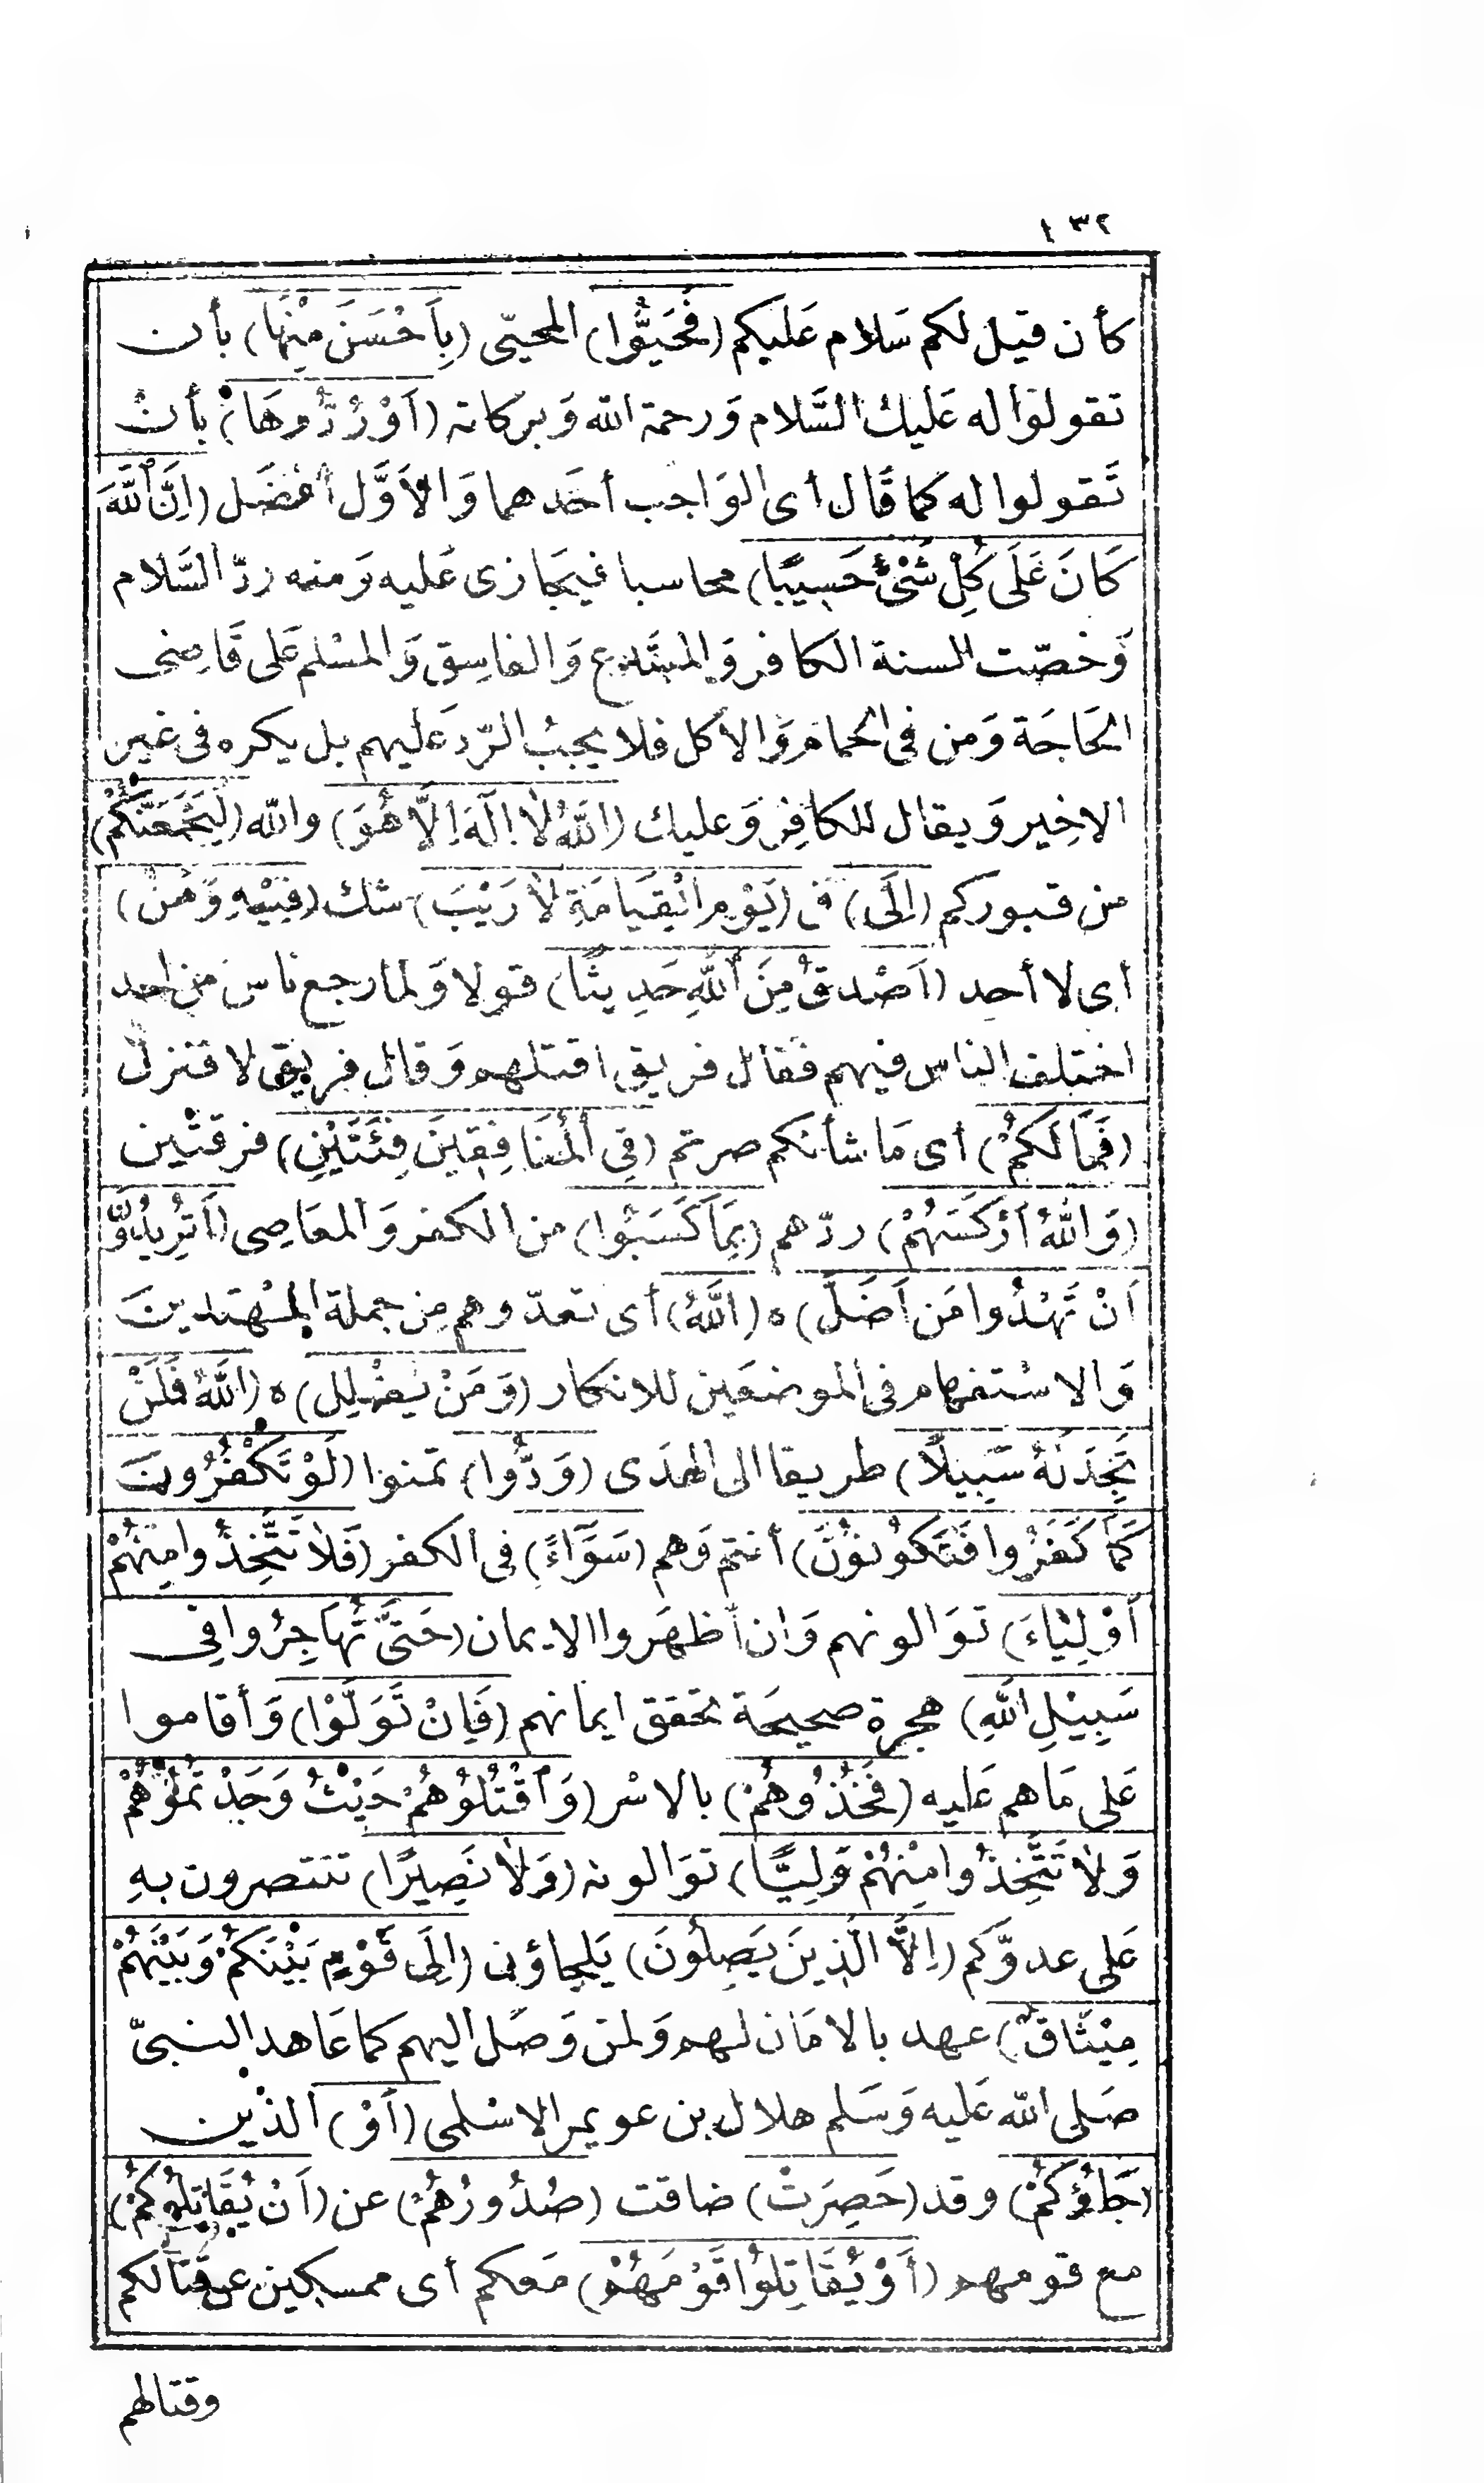 ١٣٢
كأن قيل لكم سَلام عَليكم (فَحَيُّوا) المحيّى (بِاَحْسَنَ مِنْهَا) بأن
تقولوا له عَليك السَّلام وَرحمة الله وَبركاته (اَوْ رُدُّوهَا) بأنْ
تَقولوا له كما قَال أى الوَاجب أحَدهما وَالاَوَّل أفضَل (اِنَّ ٱللّٰهَ
كَانَ عَلَى كُلِّ شَىْءٍ حَسِيبًا) محاسبا فيجَازى عَليه وَمنه ردّ السَّلام
وَخصّت السنة الكافر وَالمبتَدع وَالفاسِق وَالمسْلم عَلى قَاضِى
الحَاجَة وَمن فى الحمام وَالاٰكل فلا يجبُ الرّد عَليهم بل يكره فى غير
الاخِير وَيقال للكافِر وَعليك (اَللّٰهُ لاٰ اِلٰهَ اِلاَّ هُوَ) والله (لَيَجْمَعَنَّكُمْ)
من قبوركم (اِلَى) فى (يَوْمِ الْقِيَامَةِ لاٰ رَيْبَ) شك (فِيْهِ وَمَنْ)
أى لا أحد (اَصْدَقُ مِنَ ٱللّٰهِ حَدِيثًا) قولا وَلما رجع ناس من احد
اختلف الناس فيهم فقال فريق اقتلهم وَقال فريق لا فنزل
(فَمَا لَكُمْ) أى مَا شأنكم صرتم (فِى ٱلْمُنَافِقِينَ فِئَتَيْنِ) فرقتَين
(وَاللّٰهُ اَرْكَسَهُمْ) ردّهم (بِمَا كَسَبُوا) من الكفر وَالمعَاصى (اَتُرِيدُونَ
اَنْ تَهْدُوا مَن اَضَلَّ) ه (اَللّٰهُ) أى تعدّوهم من جملة المهتدينَ
وَالاسْتفهام فى الموضعَين للانكار (وَمَنْ يُضْلِلِ) ه (اللّٰهُ فَلَنْ
تَجِدَ لَهُ سَبِيلاً) طريقا الى الهدَى (وَدُّوا) تمنوا (لَوْ تَكْفُرُونَ
كَمَا كَفَرُوا فَتَكُونُونَ) أنتم وَهم (سَوَآءً) فى الكفر (فَلاٰ تَتَّخِذُوا مِنْهُمْ
اَوْلِيَاءَ) توَالونهم وَان أظهَروا الايمان (حَتَّى تُهَاجِرُوا فِى
سَبِيْلِ اللّٰهِ) هجرة صحيحَة تحقق ايمانهم (فَاِنْ تَوَلَّوْا) وَأقاموا
عَلى مَا هم عَليه (فَخُذُوهُمْ) بالاسْر (وَٱقْتُلُوهُمْ حَيْثُ وَجَدْتُمُوْهُمْ
وَلاٰ تَتَّخِذُوا مِنْهُمْ وَلِيًّا) توَالونه (وَلاٰ نَصِيرًا) تنتصرون بهِ
عَلى عدوّكم (اِلاَّ الَّذِينَ يَصِلُونَ) يَلجاؤن (اِلَى قَوْمٍ بَيْنَكُمْ وَبَيْنَهُمْ
مِيْثَاقٌ) عهد بالامَان لهم وَلمن وَصَل اليهم كما عَاهد النبىّ
صَلى الله عَليه وَسَلم هلال بن عويمر الاسْلمى (اَوْ) الذين
(جَاؤُكُمْ) وقد (حَصِرَتْ) ضاقت (صُدُورُهُمْ) عن (اَنْ يُقَاتِلُوكُمْ)
مع قومهم (أَوْ يُقَاتِلُوا قَوْمَهُمْ) مَعكم أى ممسكين عن قتالكم
وقتالهم